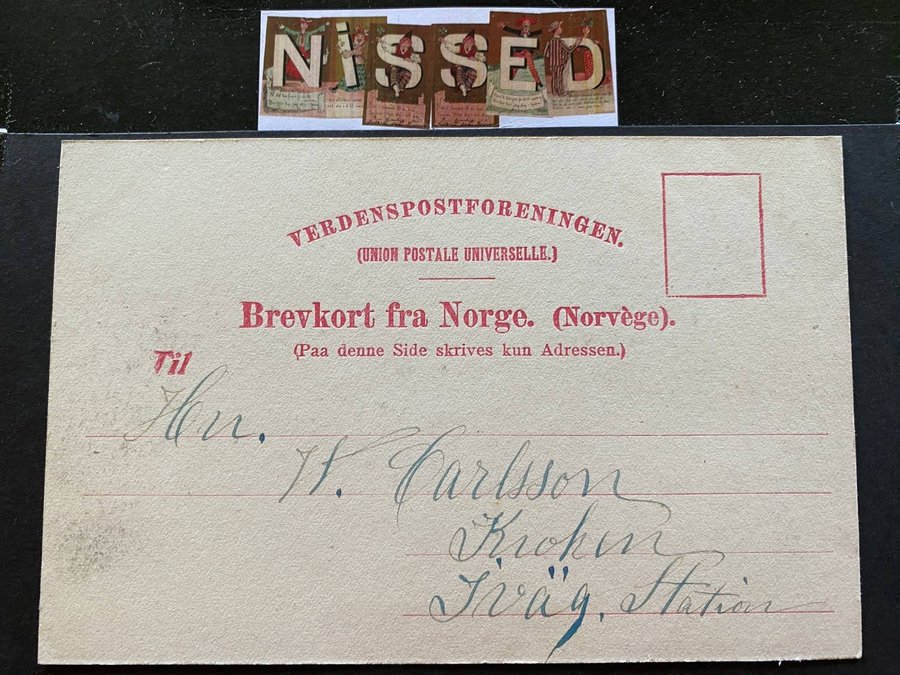 NiSSED
VERDENSPOSTFORENINGEN.
(UNION POSTALE UNIVERSELLE.)
Brevkort fra Norge. (Norvège).
(Paa denne Side skrives kun Adressen.)
Til
Hrr.
W. Carlsson
Kroken
Tväg. Station